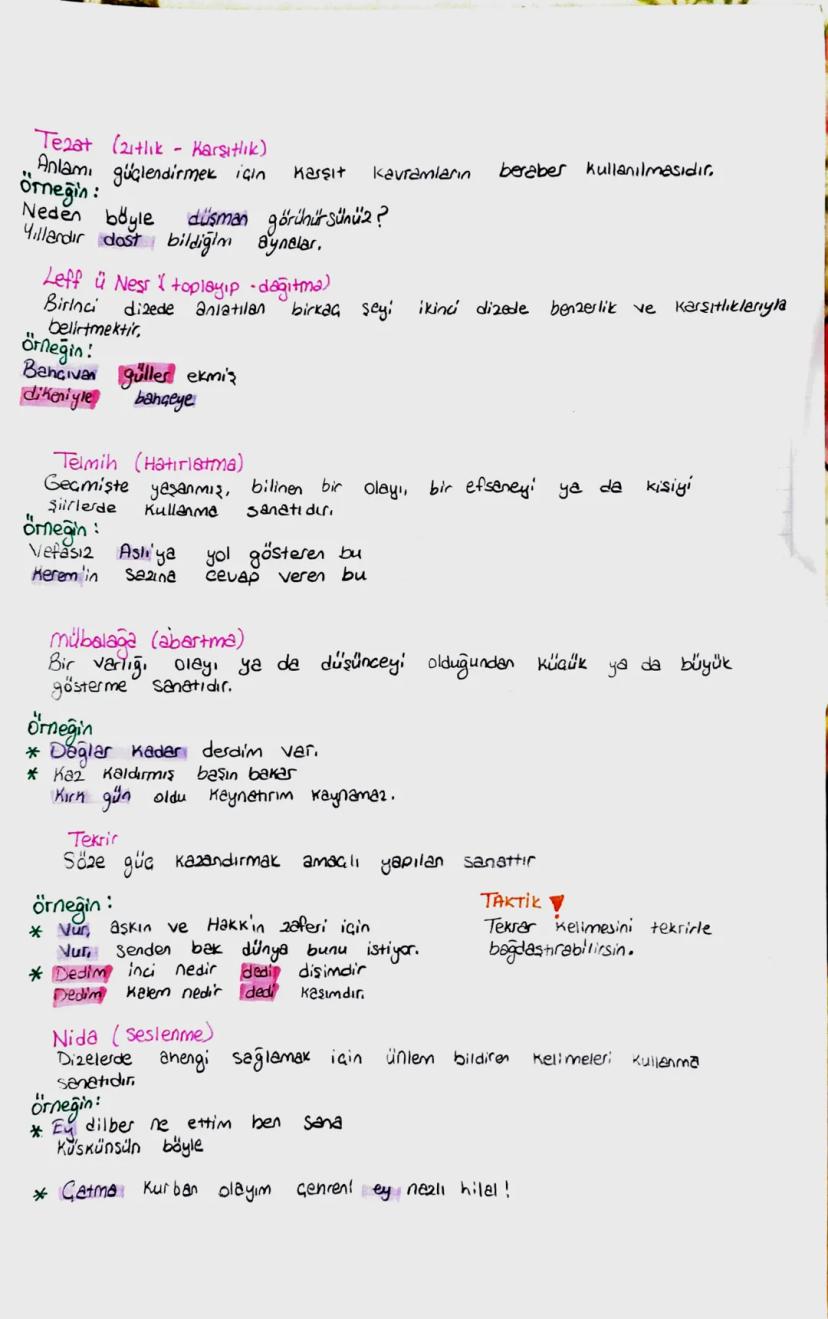 Tezat (zıtlık - Karşıtlık)
Anlamı güçlendirmek için karşıt kavramların beraber kullanılmasıdır.
Örneğin:
Neden böyle düşman görünürsünüz?
Yıllardır dost bildiğim aynalar.
Leff ü Neşr (toplayıp - dağıtma)
Birinci dizede anlatılan birkaç şeyi ikinci dizede benzerlik ve karşıtlıklarıyla
belirtmektir.
Örneğin:
Bahçıvan güller ekmiş
dikeniyle bahçeye
Telmih (Hatırlatma)
Geçmişte yaşanmış, bilinen bir olayı, bir efsaneyi ya da kişiyi
şiirlerde kullanma sanatıdır.
Örneğin:
Vefasız Aslı'ya yol gösteren bu
Kerem'in sazına cevap veren bu
Mübalağa (abartma)
Bir varlığı, olayı ya da düşünceyi olduğundan küçük ya da büyük
gösterme sanatıdır.
Örneğin
* Dağlar kadar derdim var.
* Kaz kaldırmış başın bakar
Kırk gün oldu kaynatırım kaynamaz.
Tekrir
Söze güç kazandırmak amaçlı yapılan sanattır
Örneğin:
* Vur, aşkın ve Hakk'ın zaferi için
Vur, senden bak dünya bunu istiyor.
* Dedim inci nedir dedi dişimdir
Dedim kalem nedir dedi kaşımdır.
TAKTİK !
Tekrar kelimesini tekrirle
bağdaştırabilirsin.
Nida (seslenme)
Dizelerde ahengi sağlamak için ünlem bildiren kelimeleri kullanma
sanatıdır.
Örneğin:
* Ey dilber ne ettim ben sana
Küskünsün böyle
* Çatma kurban olayım çehreni ey nazlı hilal!